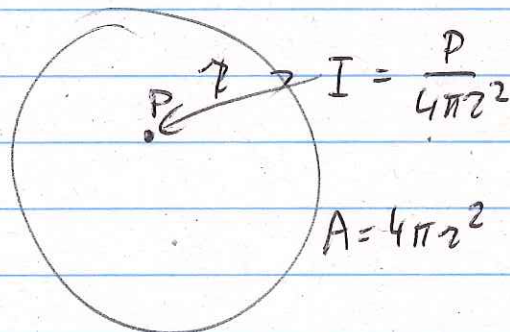 P r I = P / 4πr²
A = 4πr²